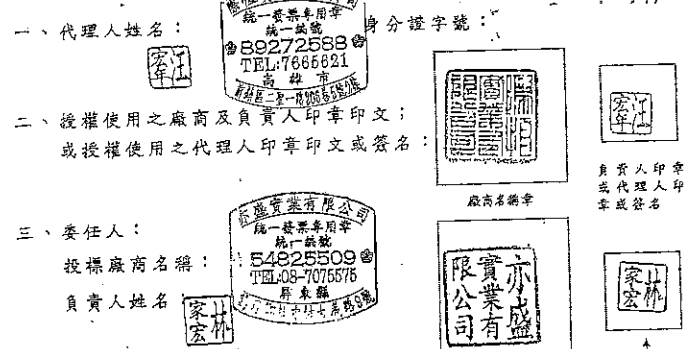 一、代理人姓名：
身分證字號：
汪宏年
統一發票專用章
統一編號
89272588
TEL:7665621
高雄市
二、授權使用之廠商及負責人印章印文；
或授權使用之代理人印章印文或簽名：
汪宏年
廠商名稱章
負責人印章
或代理人印
章或簽名
三、委任人：
投標廠商名稱：
負責人姓名
林家宏
亦盛實業有限公司
統一發票專用章
統一編號
54825509
TEL:08-7075575
屏東縣
亦盛實業有限公司
林家宏